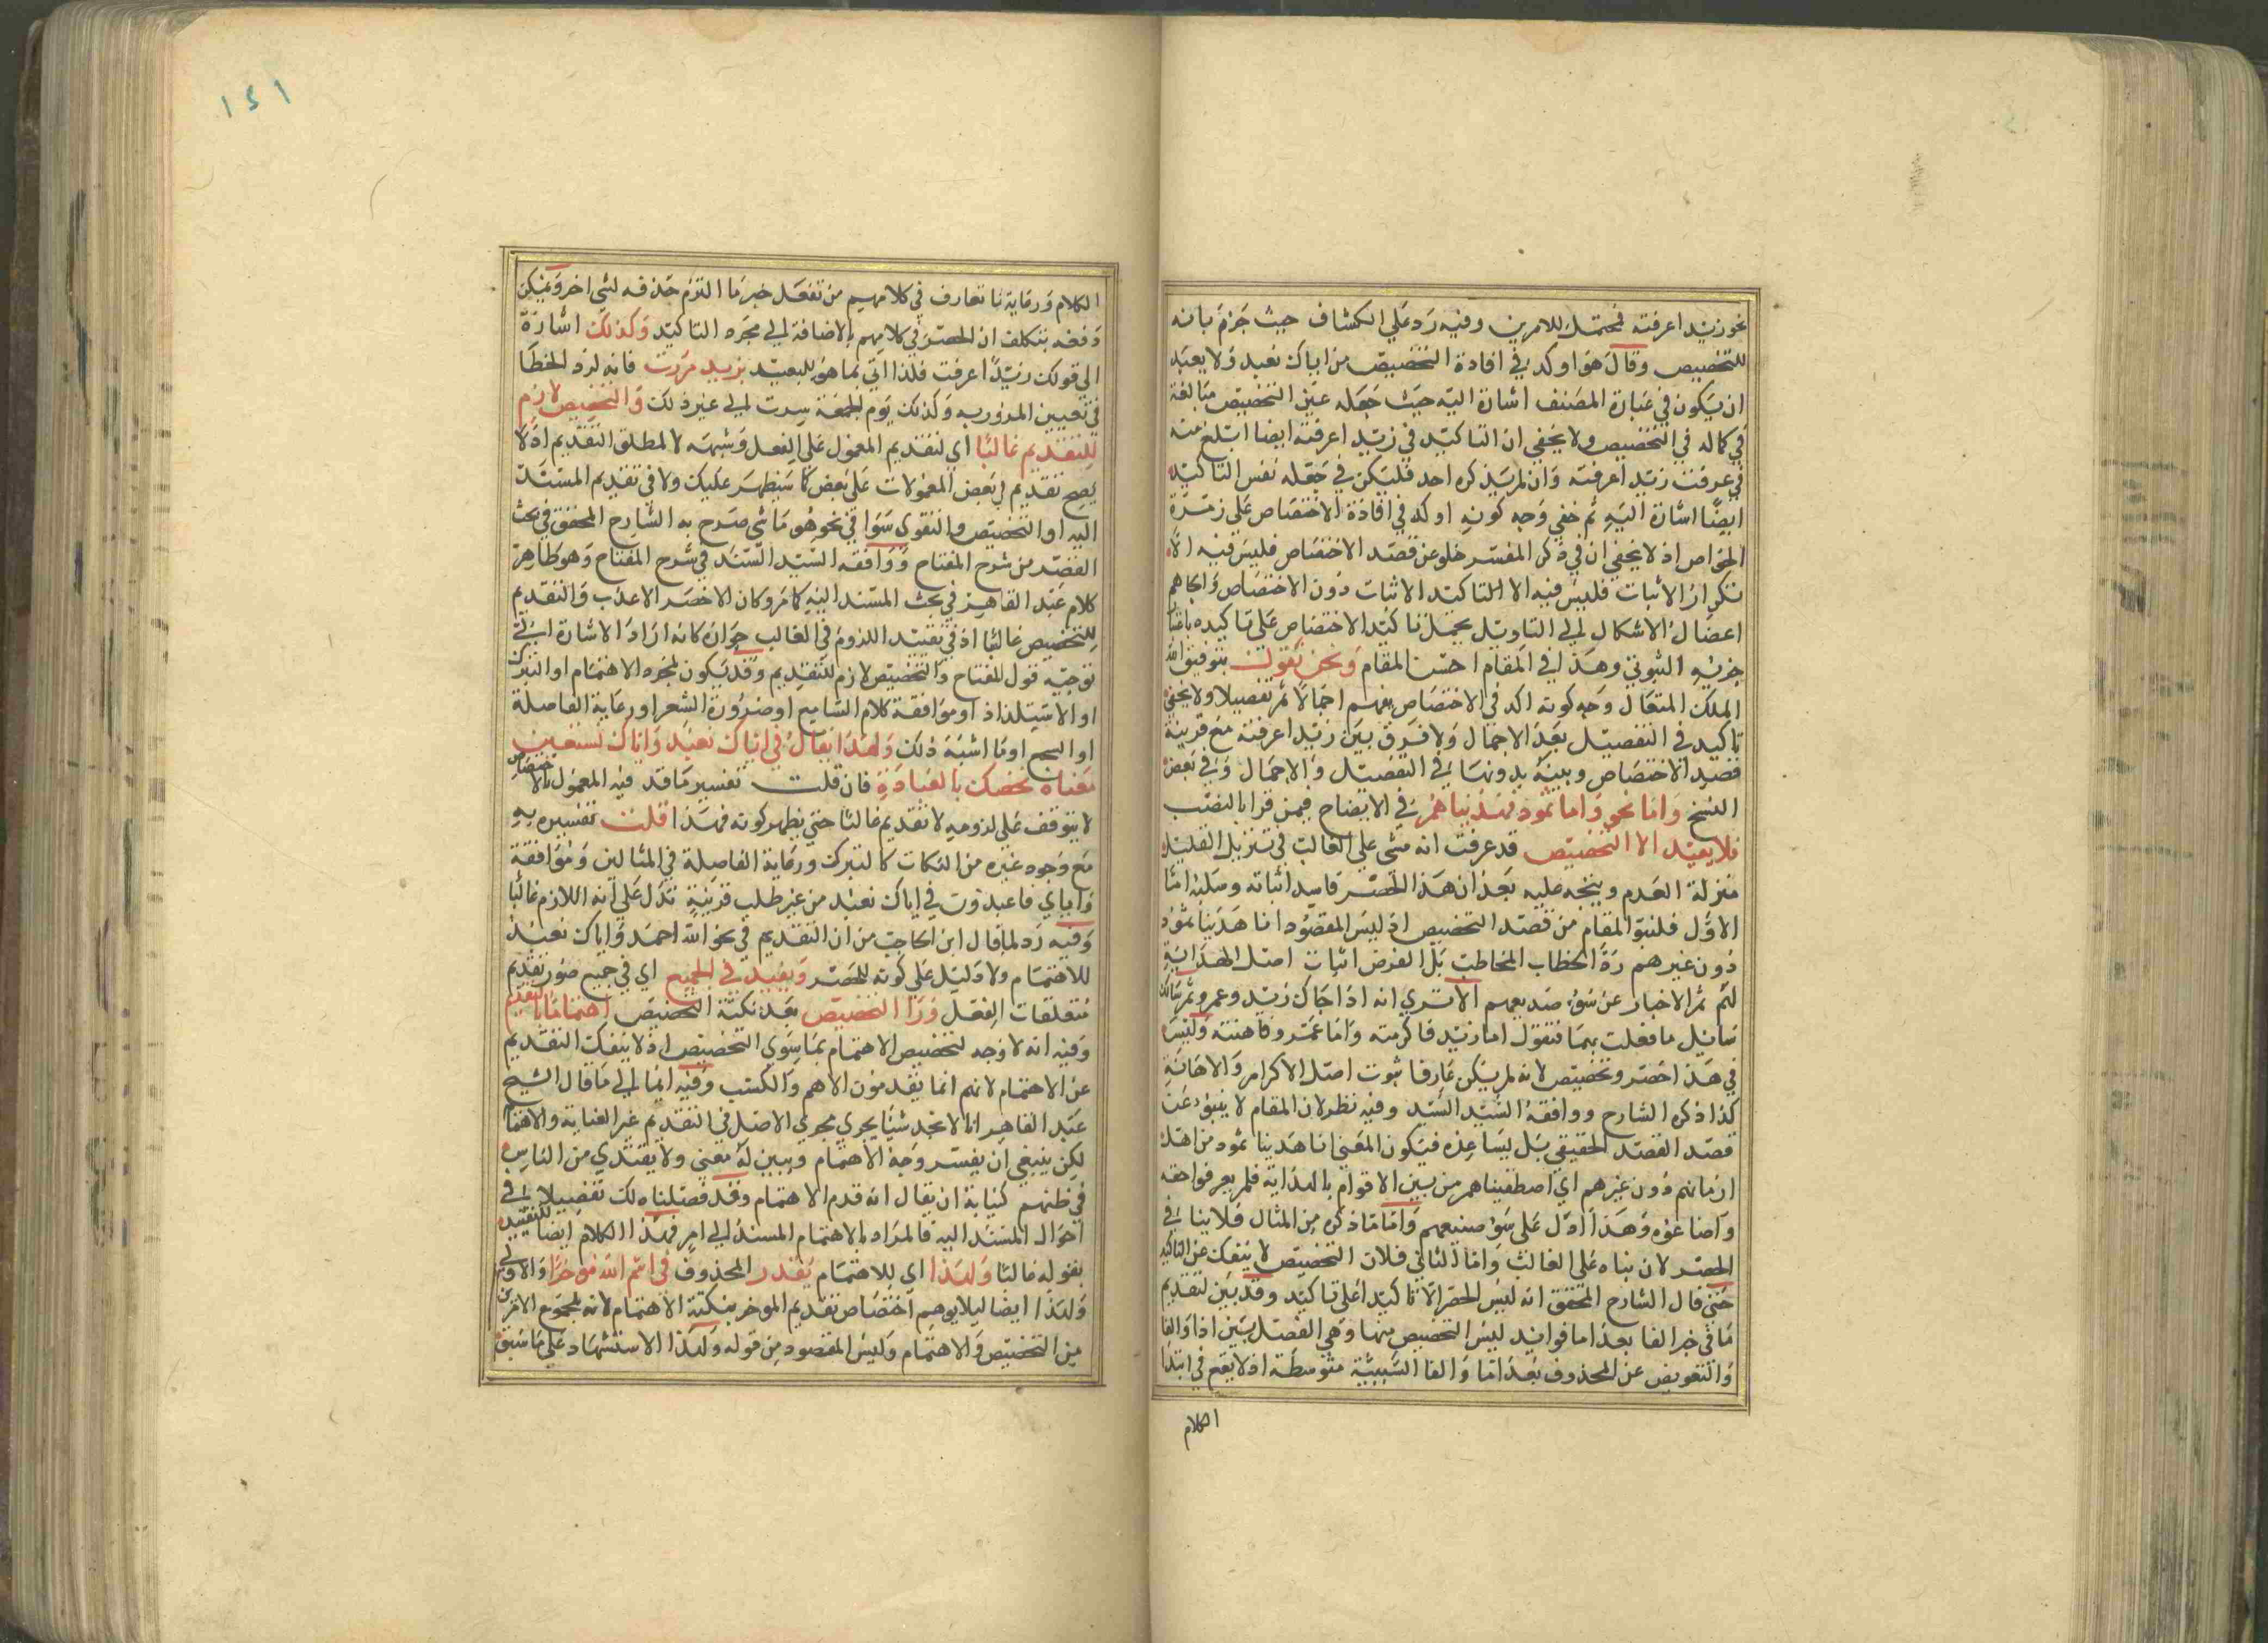 نحو زيد اعرفته فمحتمل للامرين وفيه رد على الكشاف حيث جزم بانه
للتخصيص وقال هو اوكد في افادة التخصيص من اياك نعبد ولا يعتبد
ان يكون في عبارة المصنف اشارة اليه حيث جعله عين التخصيص مبالغة
في كماله في التخصيص ولا يخفى ان التاكيد في زيد اعرفته ايضا ابلغ منه
في عرفت زيد اعرفته وان لم يذكره احد فليكن في جعله نفس التاكيد
ايضا اشارة اليه ثم خفي وجه كونه اوكد في افادة الاختصاص على زمرة
الخواص اذ لا يخفى ان في ذكر المفسر خلو عن قصد الاختصاص فليس فيه الا
تكرار الاثبات فليس فيه الا التاكيد الاثبات دون الاختصاص والجاهم
اعضال الاشكال الى التاويل بحمل تاكيد الاختصاص على تاكيده باعتبار
جزئه الثبوتي وهذا في المقام احسن المقام ونحن نقول بتوفيق الله
الملك المتعال وجه كونه اكد في الاختصاص يفهم اجمالا ثم تفصيلا ولا يخفى
تاكيد في التفصيل بعد الاجمال ولا فرق بين زيد اعرفته مع قرينة
قصد الاختصاص وبينه بدونها في التفصيل والاجمال وفي بعض
النسخ واما نحو واما ثمود فهديناهم في الايضاح فيمن قرا بالنصب
فلا يفيد الا التخصيص قد عرفت انه مشى على الغالب في تنزيل القليل
منزلة العدم ويتجه عليه بعد ان هذا الحصر فاسد اثباته وسلبه اما
الاول فلنبو المقام من قصد التخصيص اذ ليس المقصود انا هدينا ثمود
دون غيرهم رد الخطاب المخاطب بل الغرض اثبات اصل الهداية
لهم ثم الاخبار عن سوء صنيعهم الا ترى انه اذا جاك زيد وعمرو ثم سالك
سائل ما فعلت بهما فتقول اما زيد فاكرمته واما عمرو فاهنته وليس
في هذا حصر وتخصيص لانه لم يكن عارفا بثبوت اصل الاكرام والاهانة
كذا ذكره الشارح ووافقه السيد السند وفيه نظر لان المقام لا ينبو عن
قصد القصد الحقيقي بل يساعده فيكون المعنى انا هدينا ثمود من اهل
ازمانهم دون غيرهم اي اصطفيناهم من بين الاقوام بالهداية فلم يعرفوا حقه
واضاعوه وهذا ادل على سوء صنيعهم واما ما ذكره من المثال فلا ينافي
الحصر لان بناه على الغالب واما الثاني فلان التخصيص لا ينفك عن التاكيد
حتى قال الشارح المحقق انه ليس الحصر الا تاكيدا على تاكيد وقد بين لتقديم
ما في خبر الفا بعد اما فوائد ليس التخصيص منها وهي الفصل بين اذا والفا
والتعويض عن المحذوف بعد اما والفا السببية متوسطة اذ لا يقع في ابتدا
الكلام
١٢١
الكلام ورعاية ما تعارف في كلامهم من تفعل خبر ما التزم حذفه لشي اخر ويمكن
دفعه بتكلف ان الحصر في كلامهم بالاضافة الى مجرد التاكيد وكذلك اشارة
الى قولك زيدا عرفت فلذا اتى بما هو للبعيد بزيد مررت فانه لرد الخطا
في تعيين المرور به وكذلك يوم الجمعة سرت الى غير ذلك والتخصيص لازم
للتقديم غالبا اي لتقديم المعمول على الفعل وشبهه لا مطلق التقديم اذ لا
يصح تقديم في بعض المعمولات على بعض كما سيظهر عليك ولا في تقديم المسند
اليه او التخصيص والتقوى سوا في نحو هو ما شي صرح به الشارح المحقق في بحث
القصر من شرح المفتاح ووافقه السيد السند في شرح المفتاح وهو ظاهر
كلام عبد القاهر في بحث المسند اليه كما مر وكان الاخصر الاعذب والتقديم
للتخصيص غالبا اذ في تقييد اللزوم في الغالب حزازة كانه اراد الاشارة الى
توجيه قول المفتاح والتخصيص لازم للتقديم وقد يكون لمجرد الاهتمام او التبرك
او الاستلذاذ او موافقة كلام السامع او ضرورة الشعر او رعاية الفاصلة
او السجع او ما اشبه ذلك ولهذا يقال في اياك نعبد واياك نستعين
معناه نخصك بالعبادة فان قلت تفسير ما قد فيه المعمول بالاختصاص
لا يتوقف على لزومه لا تقديم غالبا حتى يظهر كونه فهذا قلت تفسيره به
مع وجود غيره من النكات كالتبرك ورعاية الفاصلة في المثالين وموافقة
واياي فاعبدون في اياك نعبد من غير طلب قرينة تدل على انه اللازم غالبا
وفيه رد لما قال ابن الحاجب من ان التقديم في نحو الله احمد واياك نعبد
للاهتمام ولا دليل على كونه للحصر ويفيد في الجميع اي في جميع صور تقديم
متعلقات الفعل ورا التخصيص بعد نكتة التخصيص اهتماما بالمقدم
وفيه انه لا وجه لتخصيص الاهتمام بما سوى التخصيص اذ لا ينفك التقديم
عن الاهتمام لانهم انما يقدمون الاهم والكتب وفيه ايما الى ما قال الشيخ
عبد القاهر انا لا نجد شيئا يجري مجرى الاصل في التقديم غير العناية والاهتمام
لكن ينبغي ان يفسر وجه الاهتمام ويبين له معنى ولا يقتدي من الناس
في ظنهم كناية ان يقال انه قدم الاهتمام وقد فصلناه لك تفصيلا في
احوال المسند اليه فالمراد بالاهتمام المسند الى امر فهذا الكلام ايضا للتقييد
بقوله غالبا ولهذا اي للاهتمام يقدر المحذوف في بسم الله مؤخرا والاولى
ولهذا ايضا ليلا يوهم اختصاص تقديم المؤخر بنكتة الاهتمام لانه لمجموع الامرين
من التخصيص والاهتمام وليس المقصود من قوله ولهذا الاستشهاد على ما سبق